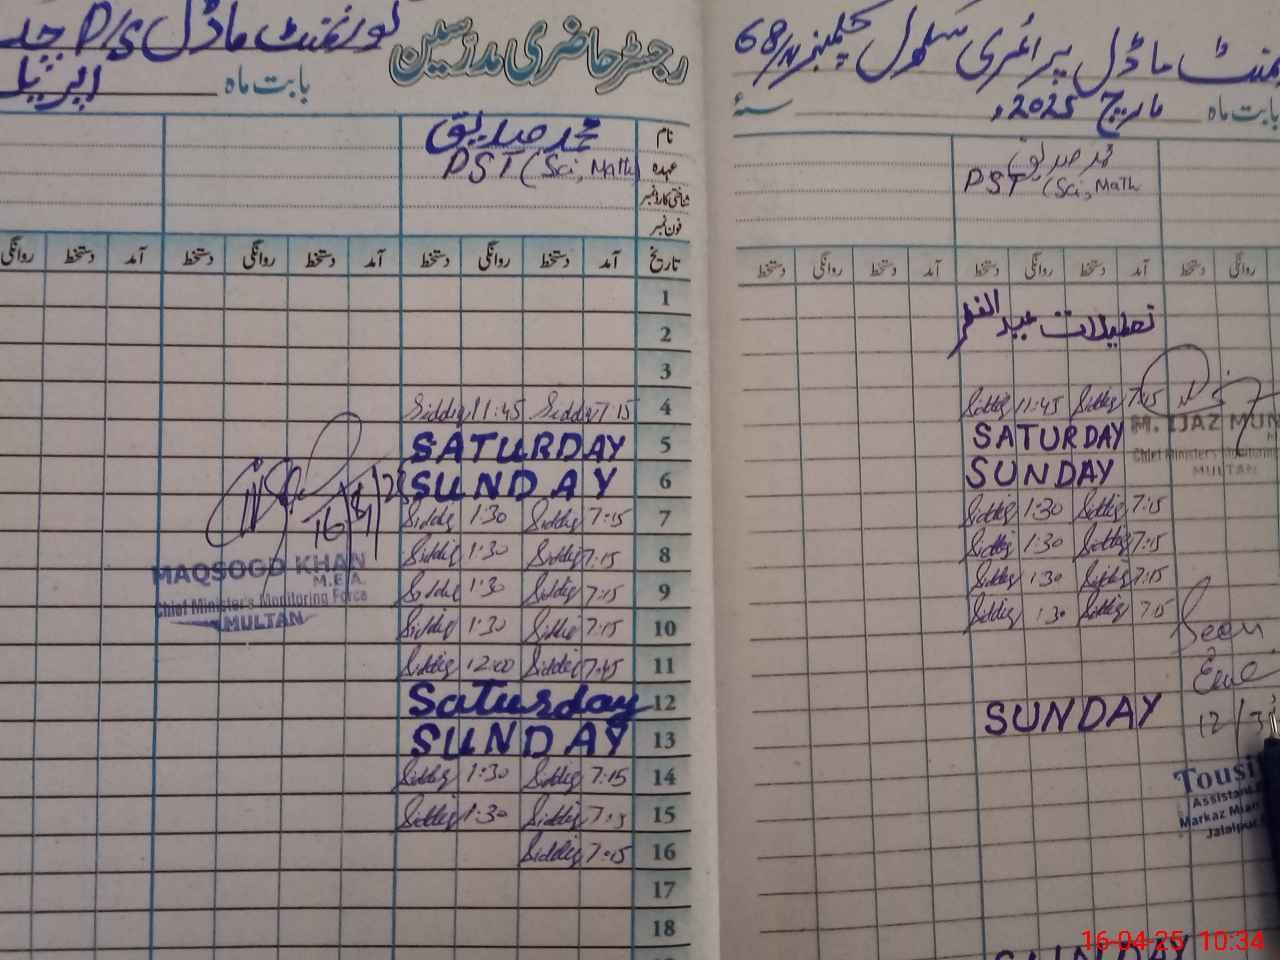 گورنمنٹ ماڈل P/S چک
رجسٹر حاضری مدرسین
بابت ماہ اپریل
نام محمد صدیق
عہدہ PST (Sci, Math)
شناختی کارڈ نمبر
فون نمبر
تاریخ آمد دستخط روانگی دستخط آمد دستخط روانگی دستخط آمد دستخط روانگی
1
2
3
4 7:15 Siddiq 11:45 Siddiq
5 SATURDAY
6 SUNDAY
7 7:15 Siddiq 1:30 Siddiq
8 7:15 Siddiq 1:30 Siddiq
9 7:15 Siddiq 1:30 Siddiq
10 7:15 Siddiq 1:30 Siddiq
11 7:45 Siddiq 12:00 Siddiq
12 Saturday
13 SUNDAY
14 7:15 Siddiq 1:30 Siddiq
15 7:15 Siddiq 1:30 Siddiq
16 7:15 Siddiq
17
18
MAQSOOD KHAN
M.E.A.
Chief Minister's Monitoring Force
MULTAN
ماڈل پرائمری سکول 68/M
بابت ماہ مارچ 2025ء سنہ
محمد صدیق
PST (Sci, Math
روانگی دستخط آمد دستخط روانگی دستخط آمد دستخط روانگی دستخط
تعطیلات عید الفطر
7:15 Siddiq 11:45 Siddiq
SATURDAY
SUNDAY
7:15 Siddiq 1:30 Siddiq
7:15 Siddiq 1:30 Siddiq
7:15 Siddiq 1:30 Siddiq
7:15 Siddiq 1:30 Siddiq
SUNDAY
M. IJAZ MUN
Chief Minister's Monitoring
MULTAN
Seen
12/3
Tousi
Assistant
Markaz Mian
Jalalpur
SUNDAY
16-04-25 10:34